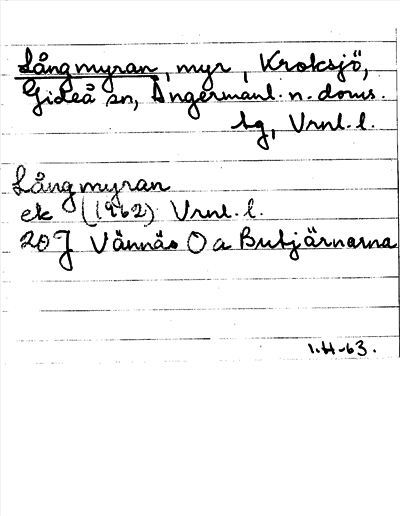 Långmyran, myr, Kroksjö,
Gideå sn, Ångermanl. n. doms.
bg, Vrnl. l.
Långmyran
ek (1962) Vrnl. l.
20 J Vännäs O a Butjärnarna
1.H-63.